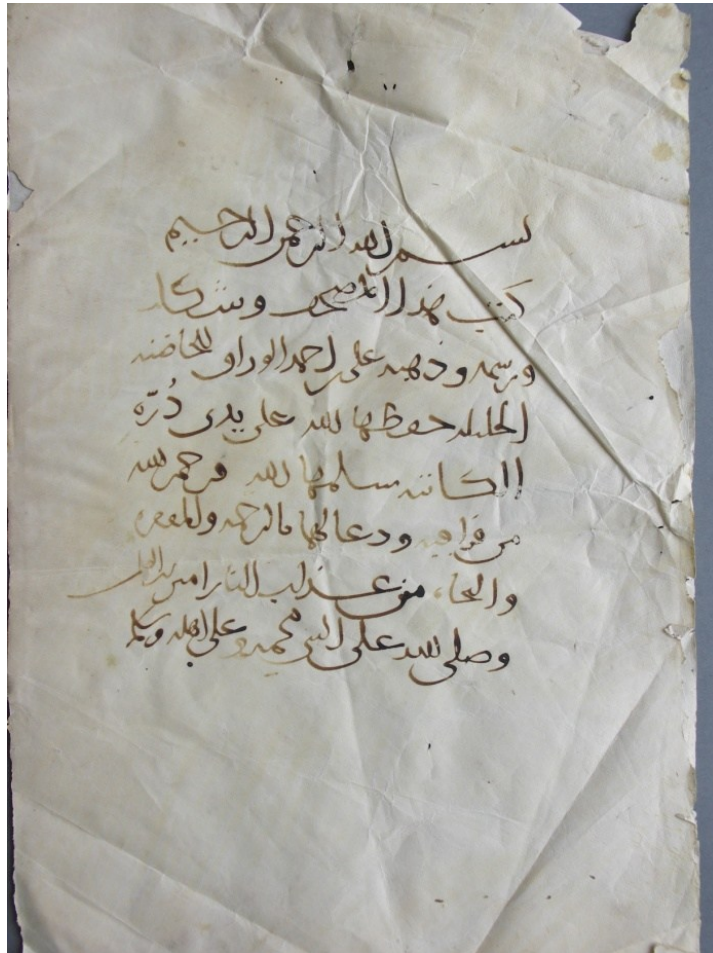 بسم الله الرحمن الرحيم
كتب هذا المصحف وشكله
ورسمه وذهبه علي بن احمد الوراق للحاضنة
الجليلة حفظها الله على يدي دُرّة
الكاتبة سلمها الله فرحم الله
من قرا فيه ودعا لهما بالرحمة والمغفرة
والنجاة من عذاب النار امين رب العالمين
وصلى الله على النبي محمد وعلى اهله وسلم